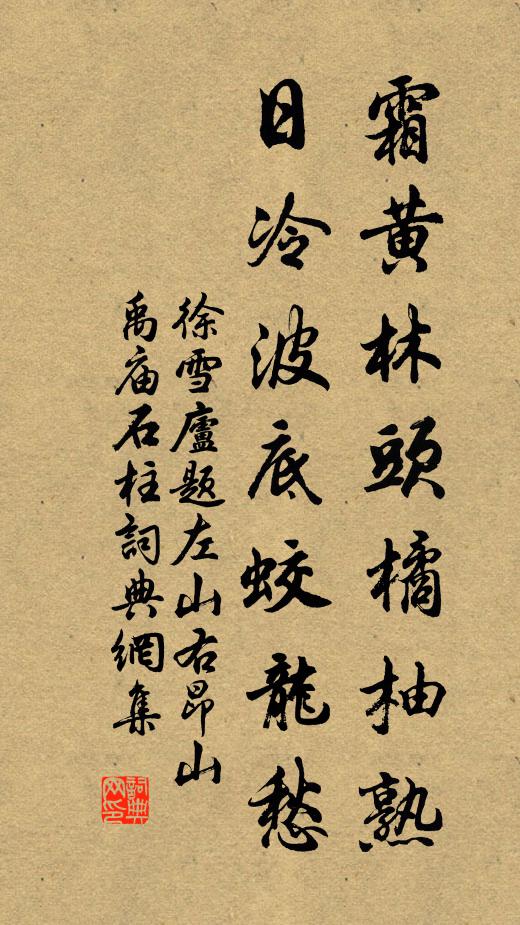 霜黄林頭橘柚熟
日冷波底蛟龍愁
徐雪廬题左山右昂山
禹庙石柱詞典網集
詞典网印